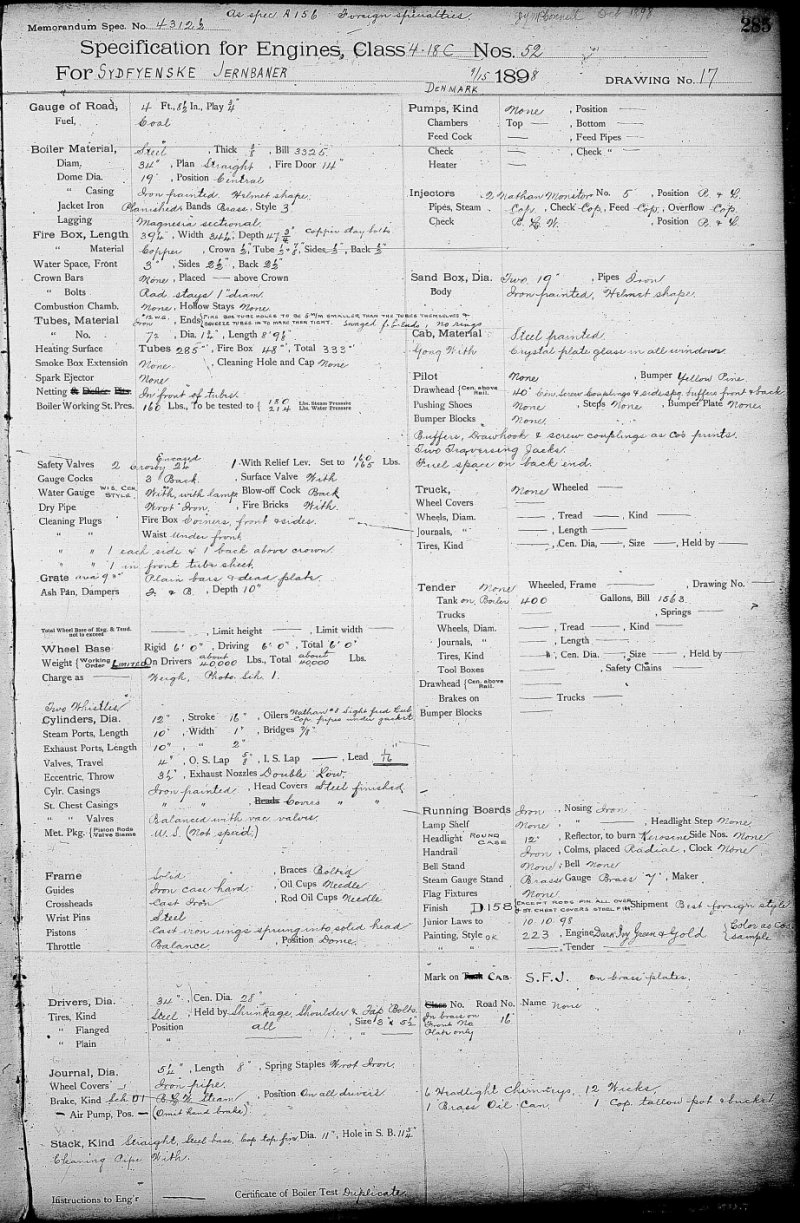 As spec R156 Foreign specialties. Oct 1898
285
Memorandum Spec. No. 4312½
Specification for Engines, Class 4-18 C Nos. 52
For SYDFYENSKE JERNBANER 9/15 1898 DRAWING No. 17
DENMARK
Gauge of Road, 4 Ft., 8½ In., Play ¾"
Fuel, Coal
Boiler Material, Steel, Thick ⅜, Bill 3325
Diam, 34", Plan Straight, Fire Door 14"
Dome Dia. 19", Position Central
" Casing Iron painted. Helmet shape.
Jacket Iron Planished, Bands Brass, Style 3
Lagging Magnesia sectional.
Fire Box, Length 39¼", Width 34¼, Depth 47¾ copper stay bolts
" Material Copper, Crown ½", Tube ½ & ⅞", Sides ½", Back ½"
Water Space, Front 3", Sides 2½", Back 2½"
Crown Bars None, Placed — above Crown
" Bolts Rad stays 1" diam.
Combustion Chamb. None, Hollow Stays None
Tubes, Material Iron, No 12 W.G., Ends FIRE BOX TUBE HOLES TO BE 5 M/M SMALLER THAN THE TUBES THEMSELVES & SQUEEZE TUBES IN TO MAKE THEM TIGHT. Swaged f.b. Ends, no rings
" No. 72, Dia. 1¾", Length 8' 9⅛"
Heating Surface Tubes 285 □', Fire Box 48 □', Total 333 □'
Smoke Box Extension None, Cleaning Hole and Cap None
Spark Ejector None
Netting & Defler. Pltr. In front of tubes.
Boiler Working St. Pres. 160 Lbs., To be tested to { 180 Lbs. Steam Pressure
214 Lbs. Water Pressure
Safety Valves 2 Crosby 2¼ Encased 1 With Relief Lev. Set to 160 165 Lbs.
Gauge Cocks 3 Back, Surface Valve With
Water Gauge W.I.S. COK. STYLE. With, with lamp, Blow-off Cock Back
Dry Pipe Wrot Iron, Fire Bricks With.
Cleaning Plugs Fire Box Corners, front & sides.
" " Waist Under front
" " 1 each side & 1 back above crown
" " 1 in front tube sheet.
Grate area 9 □' Plain bars & dead plate.
Ash Pan, Dampers F. & B., Depth 10"
Total Wheel Base of Eng. & Tend. not to exceed —, Limit height —, Limit width —
Wheel Base Rigid 6' 0", Driving 6' 0", Total 6' 0"
Weight { Working Order Limited On Drivers about 40,000 Lbs., Total about 40,000 Lbs.
Charge as — Weigh, Photo. Sch. 1.
Two Whistles
Cylinders, Dia. 12", Stroke 16", Oilers Nathan #8 Sight feed Lub. Cop. pipes under jacket
Steam Ports, Length 10", Width 1", Bridges ⅞"
Exhaust Ports, Length 10", " 2"
Valves, Travel 4", O. S. Lap ⅝", I. S. Lap —, Lead 1/16"
Eccentric, Throw 3½", Exhaust Nozzles Double Low.
Cylr. Casings Iron painted, Head Covers Steel finished
St. Chest Casings " ", Heads Covers " "
" " Valves Balanced with vac. valves.
Met. Pkg. { Piston Rods Valve Stems U. S. (Not specid.)
Frame Solid, Braces Bolted
Guides Iron case hard, Oil Cups Needle
Crossheads Cast Iron, Rod Oil Cups Needle
Wrist Pins Steel
Pistons Cast iron rings sprung into solid head
Throttle Balance, Position Dome.
Drivers, Dia. 34", Cen. Dia. 28"
Tires, Kind Steel, Held by Shrinkage, Shoulder & Tap Bolts.
" Flanged Position all, Size 3" x 5½"
" Plain " — " —
Journal, Dia. 5¼", Length 8", Spring Staples Wrot Iron.
Wheel Covers Iron pipe.
Brake, Kind Sch 01 B.L.W. Steam, Position On all drivers
— Air Pump, Pos. — (Omit hand brake)
Stack, Kind Straight, Steel base, Cop top fin. Dia. 11", Hole in S. B. 11¾"
Cleaning Pipe With.
Instructions to Eng'r — Certificate of Boiler Test Duplicate.
Pumps, Kind None, Position —
Chambers Top —, Bottom —
Feed Cock —, Feed Pipes —
Check —, Check " —
Heater —
Injectors 2 Nathan Monitor No. 5, Position R. & L.
Pipes, Steam Cop, Check Cop, Feed Cop, Overflow Cop.
Check B. L. W., Position R. & L.
Sand Box, Dia. Two 19", Pipes Iron
Body Iron painted, Helmet shape.
Cab, Material Steel painted.
Gong With Crystal plate glass in all windows.
Pilot None, Bumper Yellow Pine.
Drawhead { Cen. above Rail. 40" Cen. Screw Couplings & side spg. buffers front & back
Pushing Shoes None, Steps None, Bumper Plate None.
Bumper Blocks None.
Buffers, Drawhook & screw couplings as Co's prints.
Two Traversing Jacks.
Fuel space on back end.
Truck, None Wheeled —
Wheel Covers —
Wheels, Diam. —, Tread —, Kind —
Journals, " —, Length —
Tires, Kind —, Cen. Dia, —, Size —, Held by —
Tender None Wheeled, Frame —, Drawing No. —
Tank on Boiler 400 Gallons, Bill 1563
Trucks —, Springs —
Wheels, Diam. —, Tread —, Kind —
Journals, " —, Length —
Tires, Kind —, Cen. Dia. —, Size —, Held by —
Tool Boxes —, Safety Chains —
Drawhead { Cen. above Rail. —
Brakes on —, Trucks —
Bumper Blocks —
Running Boards Iron, Nosing Iron
Lamp Shelf None, " —, Headlight Step None
Headlight ROUND CASE 12", Reflector, to burn Kerosine Side Nos. None
Handrail Iron, Colms, placed Radial, Clock None
Bell Stand None, Bell None
Steam Gauge Stand Brass, Gauge Brass, Maker
Flag Fixtures None.
Finish D.158 EXCEPT RODS FIN ALL OVER & ST. CHEST COVERS STEEL FIN. Shipment Best foreign style
Junior Laws to 10. 10. 98
Painting, Style OK 223, Engine Dark Ivy Green & Gold { Color as Co's sample
" " —, Tender —
Mark on Tank CAB. S.F.J. on brass plates.
Class No. Road No. Name None
In brass on Front No Plate only 16"
6 Headlight Chimneys, 12 Wicks.
1 Brass Oil Can, 1 Cop. tallow pot & bucket